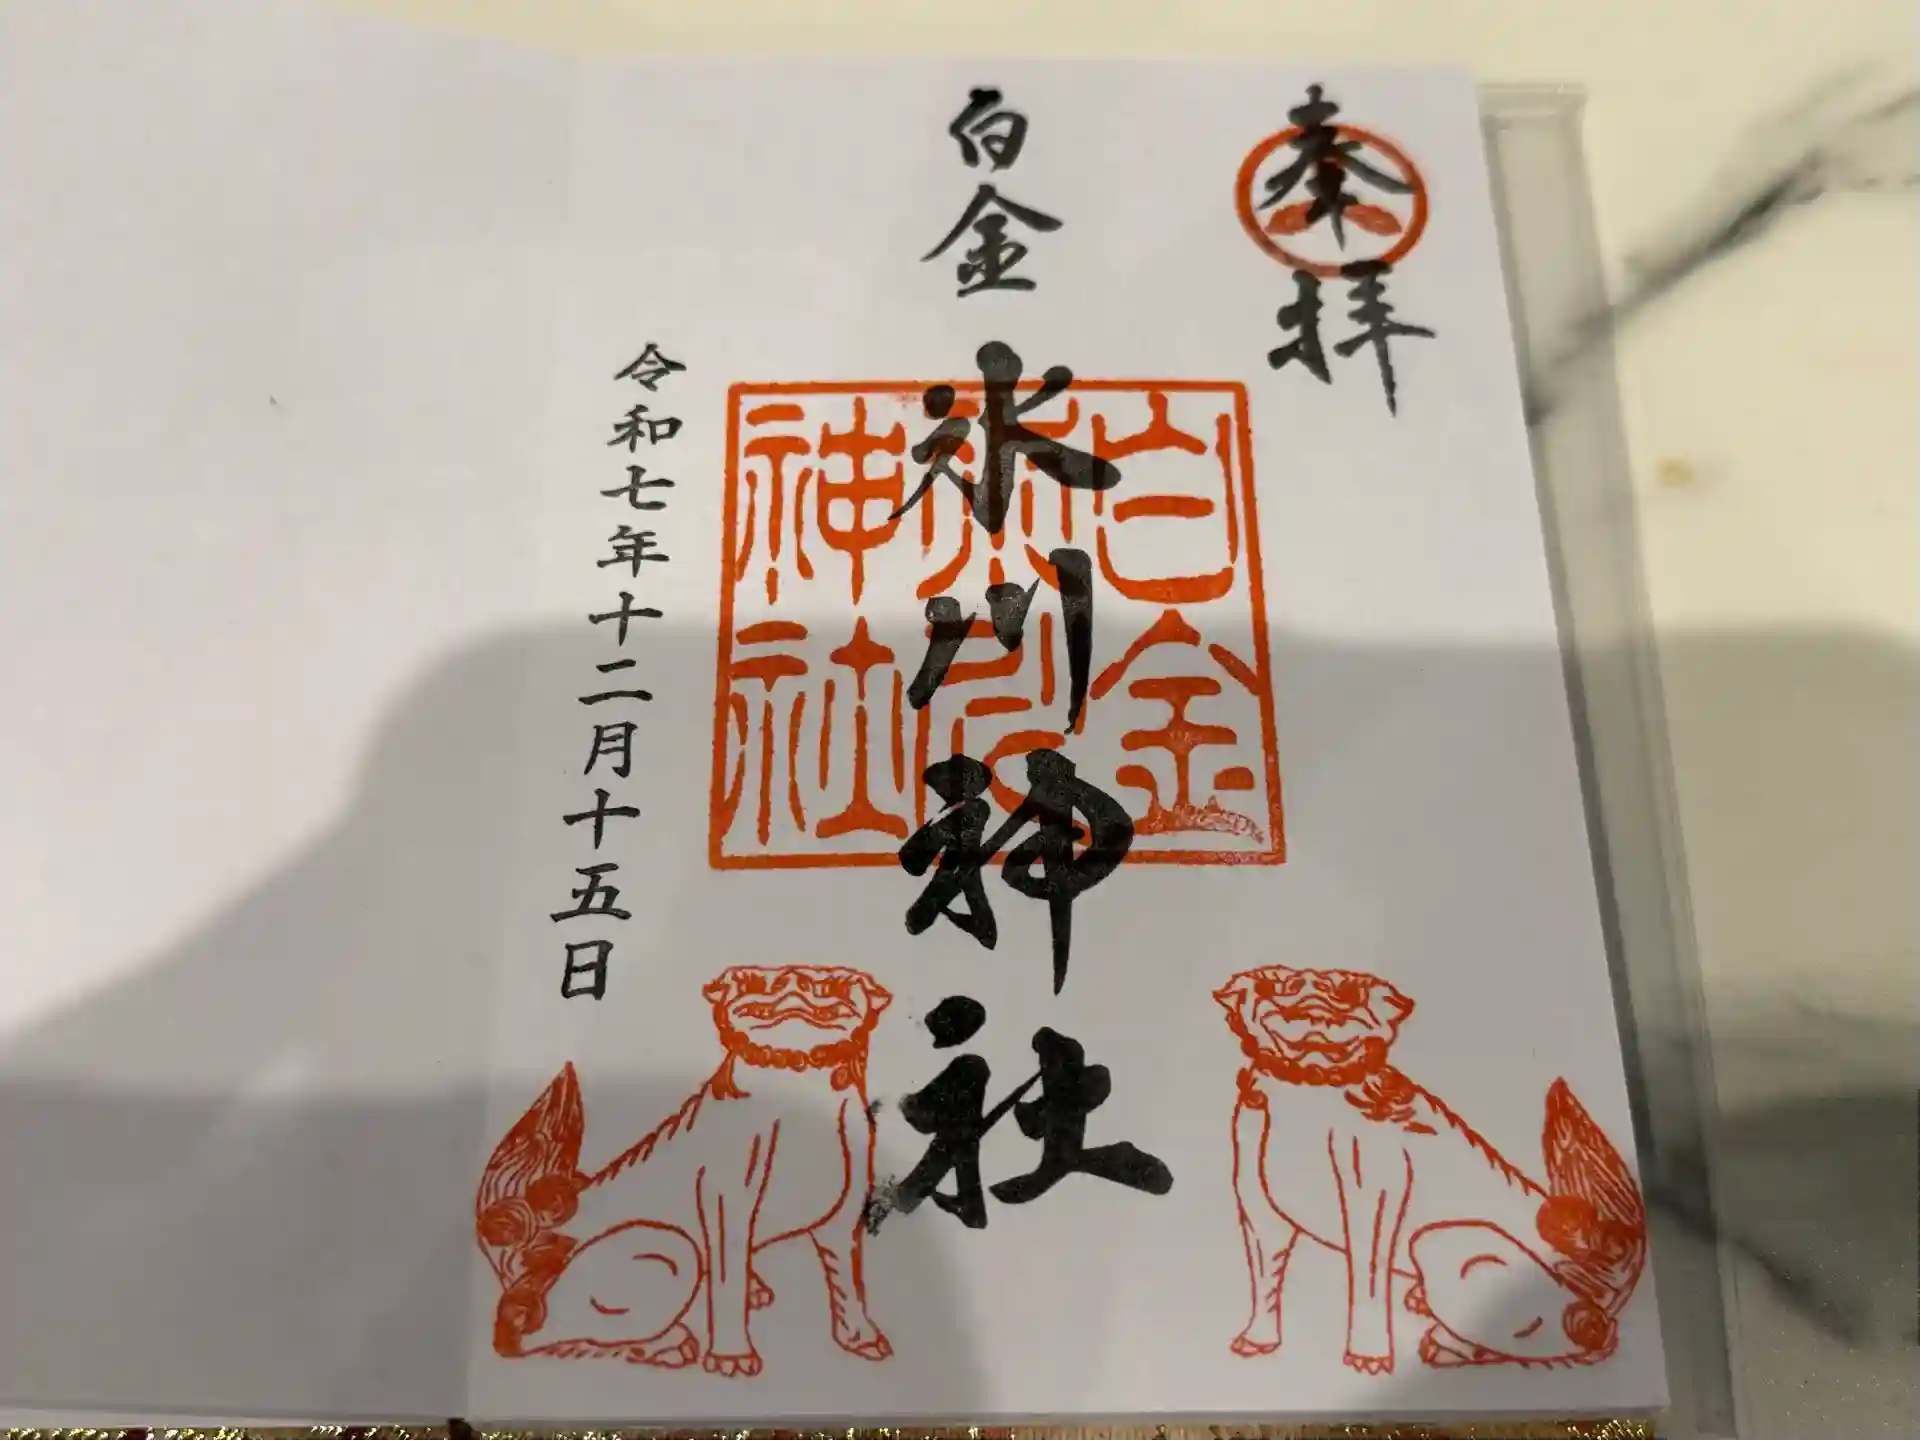 奉拝
白金
氷川神社
白金氷川神社
令和七年十二月十五日